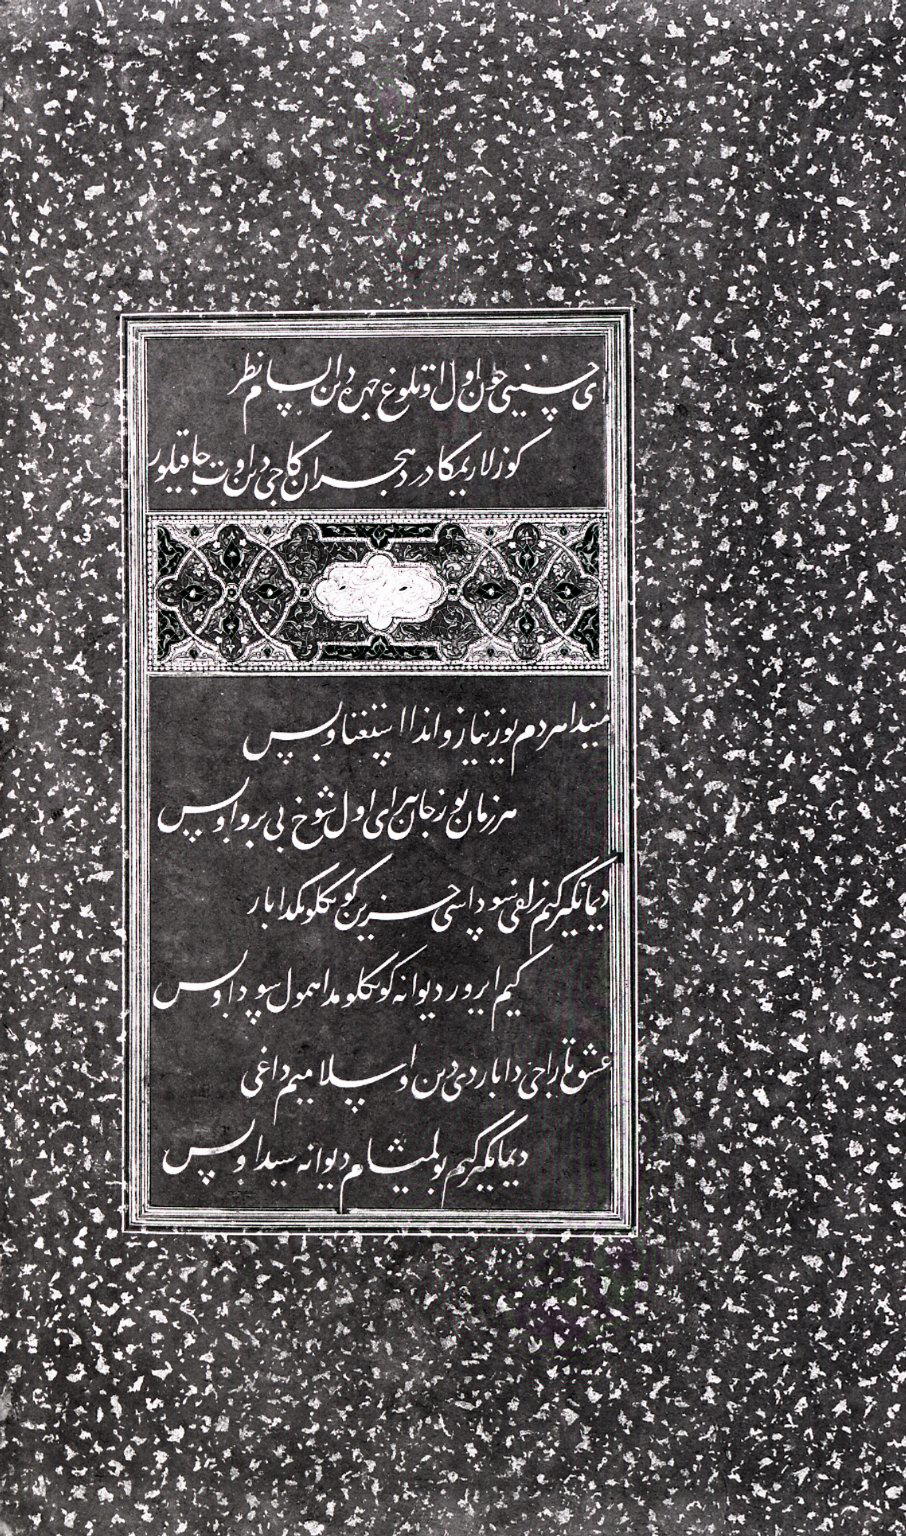 ای حسینی چون اول اوتلوغ چهره دین السام نظر
کوزلاریمکا درد هجران کاجی دین اوت جاقیلور
مندا هر دم یوز نیاز و اندا استغنا و بس
هر زمان یوز جان برای اول شوخ بی پروا و بس
دیمانکیز کیم زلفی سوداسی حزین کونکلومکدا بار
کیم ایرور دیوانه کونکلومدا همول سودا و بس
عشق تاراجی دا باردی دین و اسلامیم داغی
دیمانکیز کیم بولمیشام دیوانه شیدا و بس